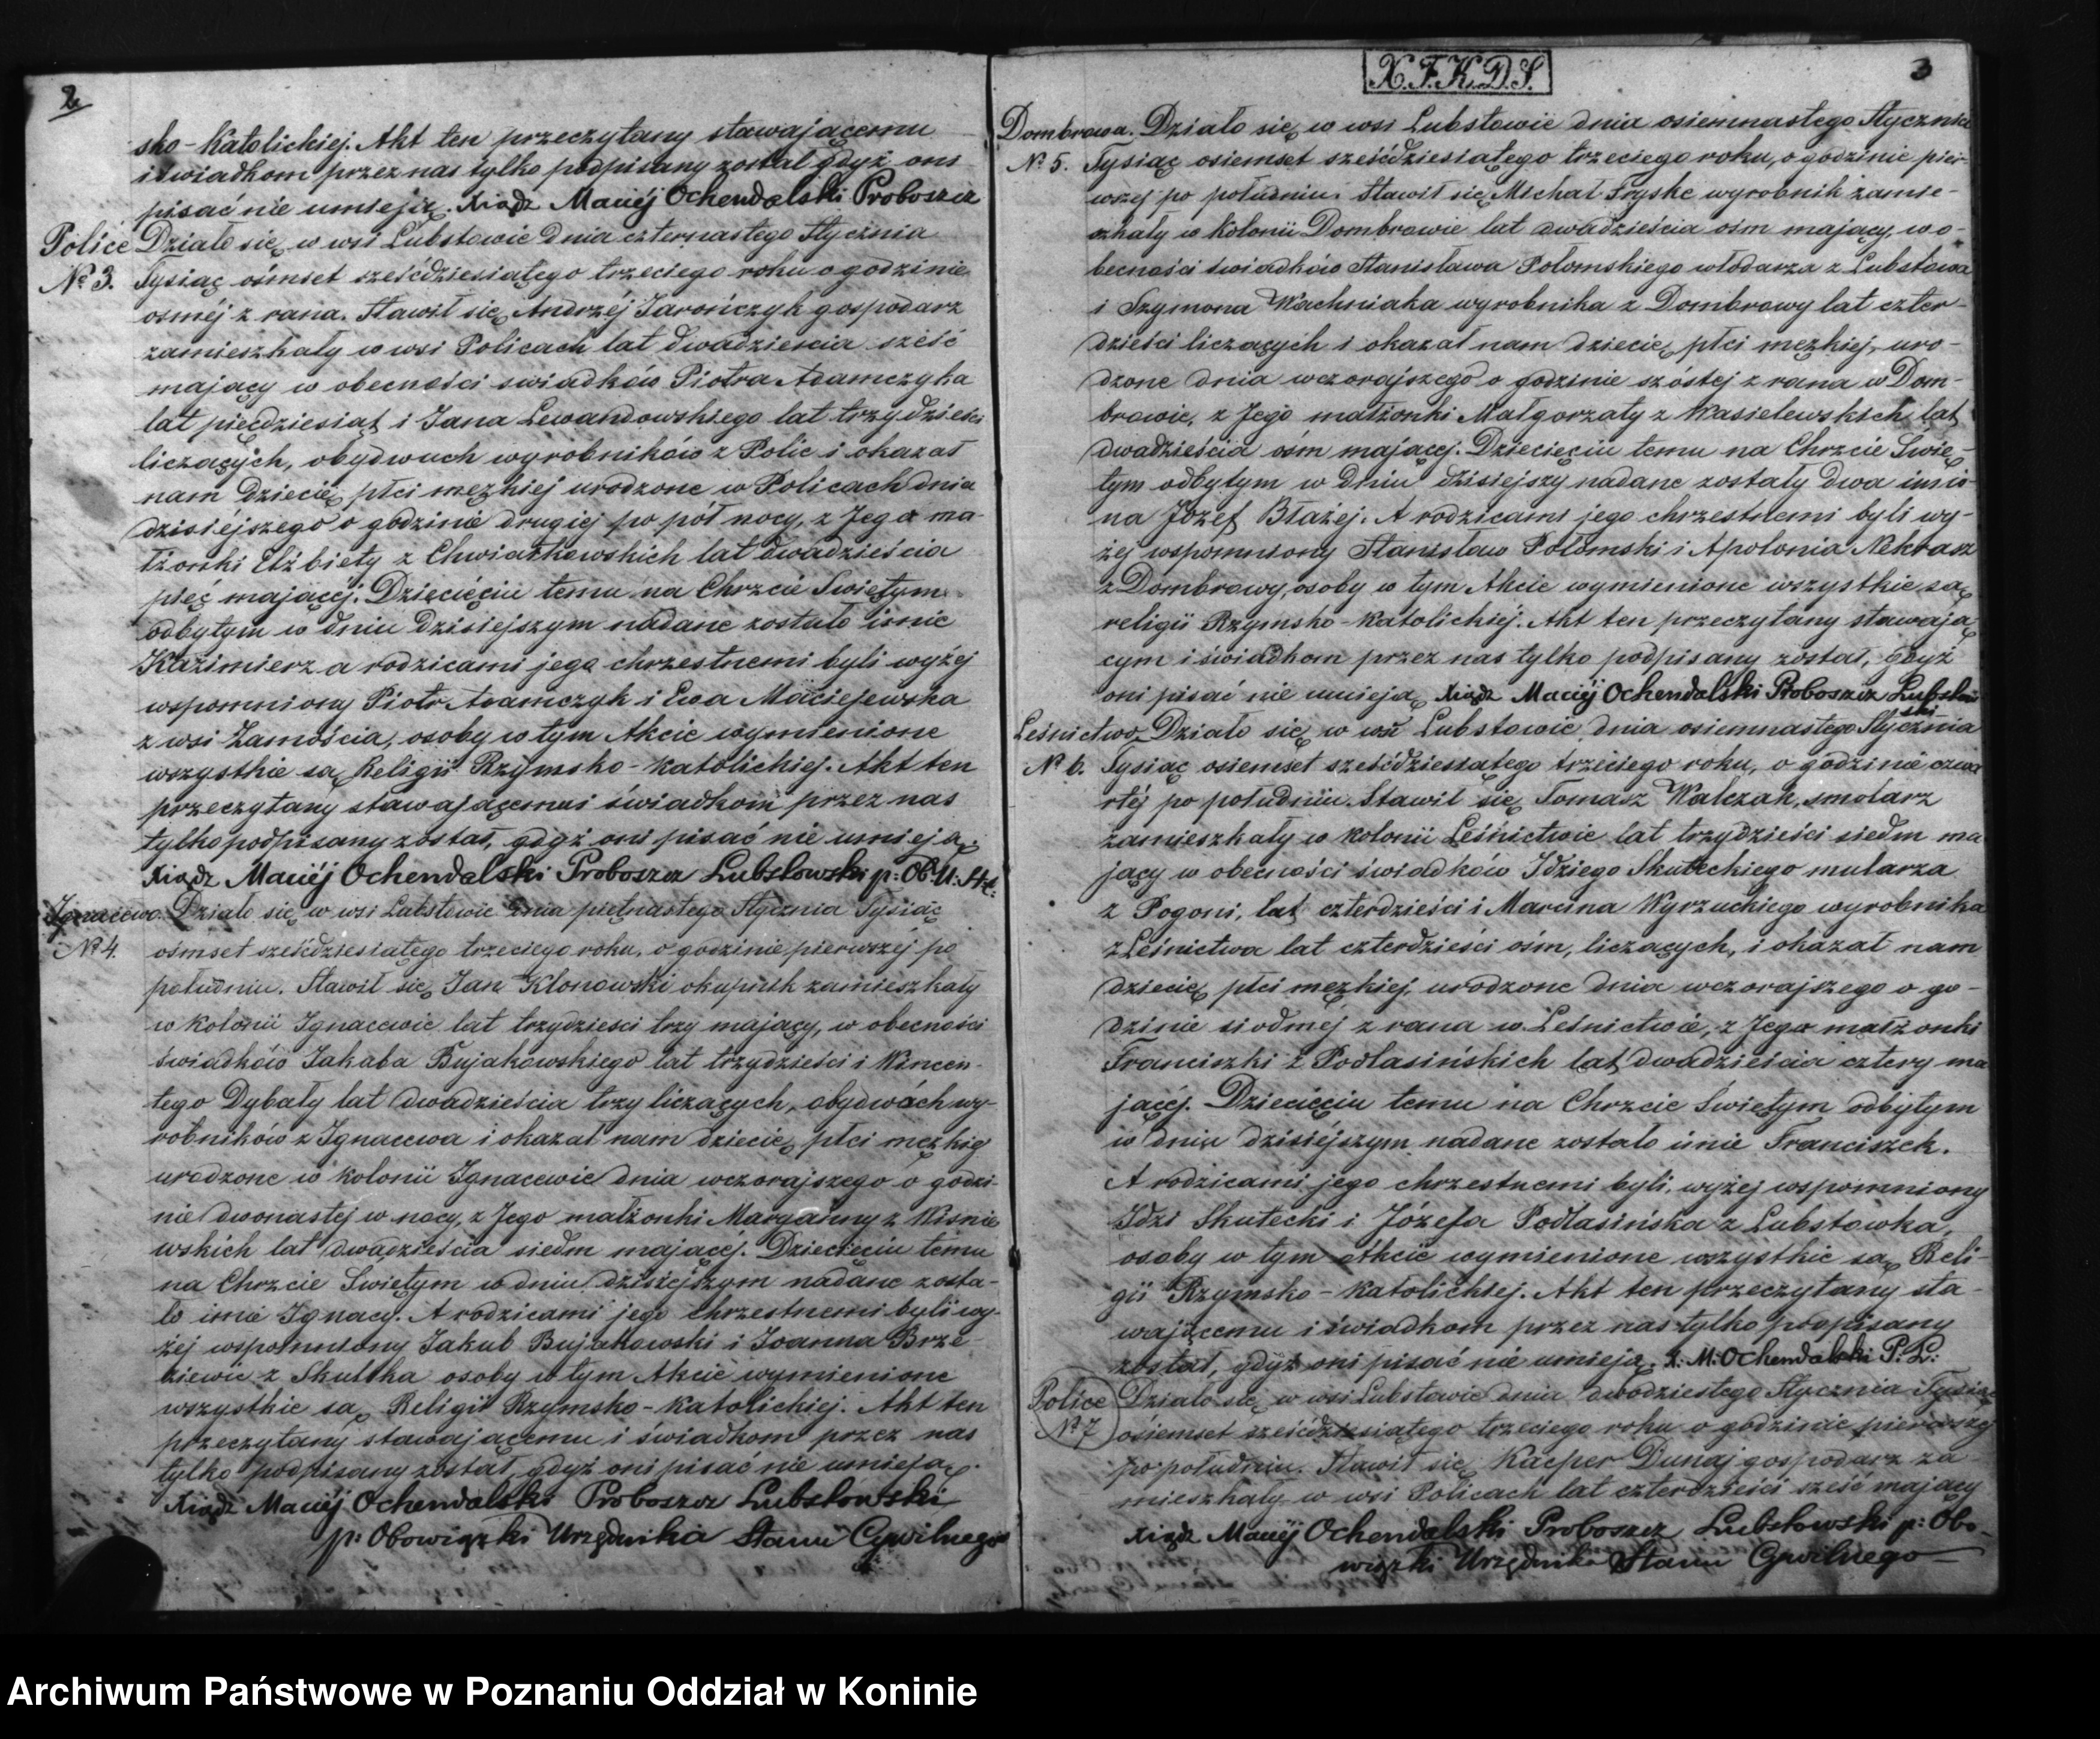 2
sko-Katolickiej. Akt ten przeczytany stawającemu
i świadkom przez nas tylko podpisany został gdyż oni
pisać nie umieją. Xiądz Maciéj Ochendalski Proboszcz
Police Działo się w wsi Lubstowie dnia czternastego Stycznia
No 3. Tysiąc ośmset sześćdziesiątego trzeciego roku o godzinie
osméj z rana. Stawił się Andrzéj Jarończyk gospodarz
zamieszkały w wsi Policach lat dwadzieścia sześć
mający w obecności swiadków Piotra Adamczyka
lat pięćdziesiąt i Jana Lewandowskiego lat trzydzieści
liczących, obydwuch wyrobników z Polic i okazał
nam Dziecię płci męzkiej urodzone w Policach dnia
dzisiéjszego o godzinie drugiej po pół nocy, z Jego ma-
łżonki Elżbiety z Chwiałkowskich lat dwadzieścia
pięć mającéj. Dziecięciu temu na Chrzcie Swiętym
odbytym w dniu Dzisiejszym nadane zostało imie
Kazimierz a rodzicami jego chrzestnemi byli wyżéj
wspomniony Piotr Adamczyk i Ewa Maciejewska
z wsi Zamościa, osoby w tym Akcie wymienione
wszystkie są Religii Rzymsko-Katolickiej. Akt ten
przeczytany stawającemu i świadkom przez nas
tylko podpisany został, gdyż oni pisać nie umieją.
Xiądz Maciéj Ochendalski Proboszcz Lubstowski p: Ob: U: St:
Ignacewo. Działo się w wsi Lubstowie dnia piętnastego Stycznia Tysiąc
No 4. ośmset sześćdziesiątego trzeciego roku, o godzinie pierwszéj po
południu. Stawił się Jan Klonowski okupnik zamieszkały
w kolonii Ignacewie lat trzydzieści trzy mający, w obecności
świadków Jakóba Bujakowskiego lat trzydzieści i Wincen-
tego Dybały lat dwadzieścia trzy liczących, obydwóch wy-
robników z Ignacewa i okazał nam dziecię płci męzkiéj
urodzone w kolonii Ignacewie dnia wczorajszego o godzi-
nie dwonastej w nocy, z Jego małżonki Maryanny z Wisnie
wskich lat dwadzieścia siedm mającéj. Dziecięciu temu
na Chrzcie Swiętym w dniu dzisiejszym nadane zosta-
ło imie Ignacy. A rodzicami jego chrzestnemi byli wy-
żéj wspomniony Jakub Bujakowski i Joanna Brze-
ziewic z Skulska osoby w tym Akcie wymienione
wszystkie są Religii Rzymsko-Katolickiej. Akt ten
przeczytany stawającemu i świadkom przez nas
tylko podpisany został, gdyż oni pisać nie umieją.
Xiądz Maciéj Ochendalski Proboszcz Lubstowski
p: Obowiązki Urzędnika Stanu Cywilnego
X.F.K.D.S.
3
Dombrowa. Działo się w wsi Lubstowie dnia osiemnastego Stycznia
No 5. Tysiąc osiemset sześćdziesiątego trzeciego roku, o godzinie pier-
wszej po południu. Stawił się Michał Fryske wyrobnik zamie-
szkały w kolonii Dombrowie lat dwadzieścia ośm mający, w o-
becności świadków Stanisława Połomskiego włodarza z Lubstowa
i Szymona Wachniaka wyrobnika z Dombrowy lat czter-
dzieści liczących i okazał nam dziecię płci męzkiej, uro-
dzone dnia wczorajszego o godzinie szóstej z rana w Dom-
browie, z Jego małżonki Małgorzaty z Wasielewskich lat
dwadzieścia ośm mającej. Dziecięciu temu na Chrzcie Swię-
tym odbytym w dniu dzisiejszy nadane zostały dwa imio-
na Józef Błażej. A rodzicami jego chrzestnemi byli wy-
żej wspomniony Stanisław Połomski i Apolonia Nekrasz
z Dombrowy, osoby w tym Akcie wymienione wszystkie są
religii Rzymsko-Katolickiej. Akt ten przeczytany stawają
cym i świadkom przez nas tylko podpisany został, gdyż
oni pisać nie umieją. Xiądz Maciéj Ochendalski Proboszcz Lubstow
ski
Leśnictwo. Działo się w wsi Lubstowie dnia osiemnastego Stycznia
No 6. Tysiąc osiemset sześćdziesiątego trzeciego roku, o godzinie czwa
rtéj po południu. Stawił się Tomasz Walczak, smolarz
zamieszkały w kolonii Leśnictwie lat trzydzieści siedm ma
jący w obecności świadków Idziego Skuteckiego mularza
z Pogoni, lat czterdzieści i Marcina Wyrzuckiego wyrobnika
z Leśnictwa lat czterdzieści ośm, liczących, i okazał nam
dziecię płci męzkiej, urodzone dnia wczorajszego o go-
dzinie siodméj z rana w Leśnictwie, z Jego małżonki
Franciszki z Podlasińskich lat dwadzieścia cztery ma
jącéj. Dziecięciu temu na Chrzcie Swiętym odbytym
w dniu dzisiéjszym nadane zostało imie Franciszek.
A rodzicami jego chrzestnemi byli, wyżej wspomniony
Idzi Skutecki i Józefa Podlasińska z Lubstówka,
osoby w tym Akcie wymienione wszystkie są Reli-
gii Rzymsko-Katolickiej. Akt ten przeczytany sta-
wającemu i świadkom przez nas tylko podpisany
został, gdyż oni pisać nie umieją. X: M: Ochendalski P: L:
Police Działo się w wsi Lubstowie dnia dwudziestego Stycznia Tysiąc
No 7 ośiemset sześćdziesiątego trzeciego roku o godzinie pierwszej
po południu. Stawił się Kacper Dunaj gospodarz za
mieszkały w wsi Policach lat czterdzieści sześć mający
Xiądz Maciéj Ochendalski Proboszcz Lubstowski p: Obo-
wiązki Urzędnika Stanu Cywilnego
Archiwum Państwowe w Poznaniu Oddział w Koninie